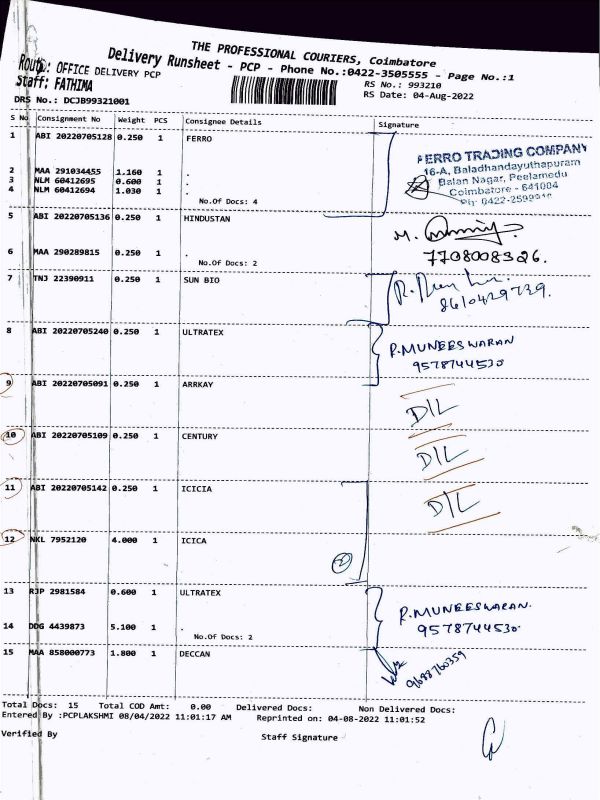 THE PROFESSIONAL COURIERS, Coimbatore
Delivery Runsheet - PCP - Phone No.:0422-3505555 - Page No.:1
Route: OFFICE DELIVERY PCP
RS No.: 993210
Staff: FATHIMA
RS Date: 04-Aug-2022
DRS No.: DCJB99321001
S No Consignment No Weight PCS Consignee Details Signature
1 ABI 20220705128 0.250 1 FERRO
FERRO TRADING COMPANY
16-A, Baladhandayuthapuram
Balan Nagar, Peelamedu
Coimbatore - 641004
2 MAA 291034455 1.160 1 .
3 NLM 60412695 0.600 1 .
4 NLM 60412694 1.030 1 .
No.Of Docs: 4
5 ABI 20220705136 0.250 1 HINDUSTAN
6 MAA 290289815 0.250 1 .
No.Of Docs: 2
7708008326.
7 TNJ 22390911 0.250 1 SUN BIO
8610429739.
8 ABI 20220705240 0.250 1 ULTRATEX
R.MUNEESWARAN
9578744530
9 ABI 20220705091 0.250 1 ARRKAY
D/L
10 ABI 20220705109 0.250 1 CENTURY
D/L
11 ABI 20220705142 0.250 1 ICICIA
D/L
12 NKL 7952120 4.000 1 ICICA
2
13 RJP 2981584 0.600 1 ULTRATEX
R.MUNEESWARAN.
9578744530
14 DDG 4439873 5.100 1 .
No.Of Docs: 2
15 MAA 858000773 1.800 1 DECCAN
9688760359
Total Docs: 15 Total COD Amt: 0.00 Delivered Docs: Non Delivered Docs:
Entered By :PCPLAKSHMI 08/04/2022 11:01:17 AM Reprinted on: 04-08-2022 11:01:52
Verified By Staff Signature